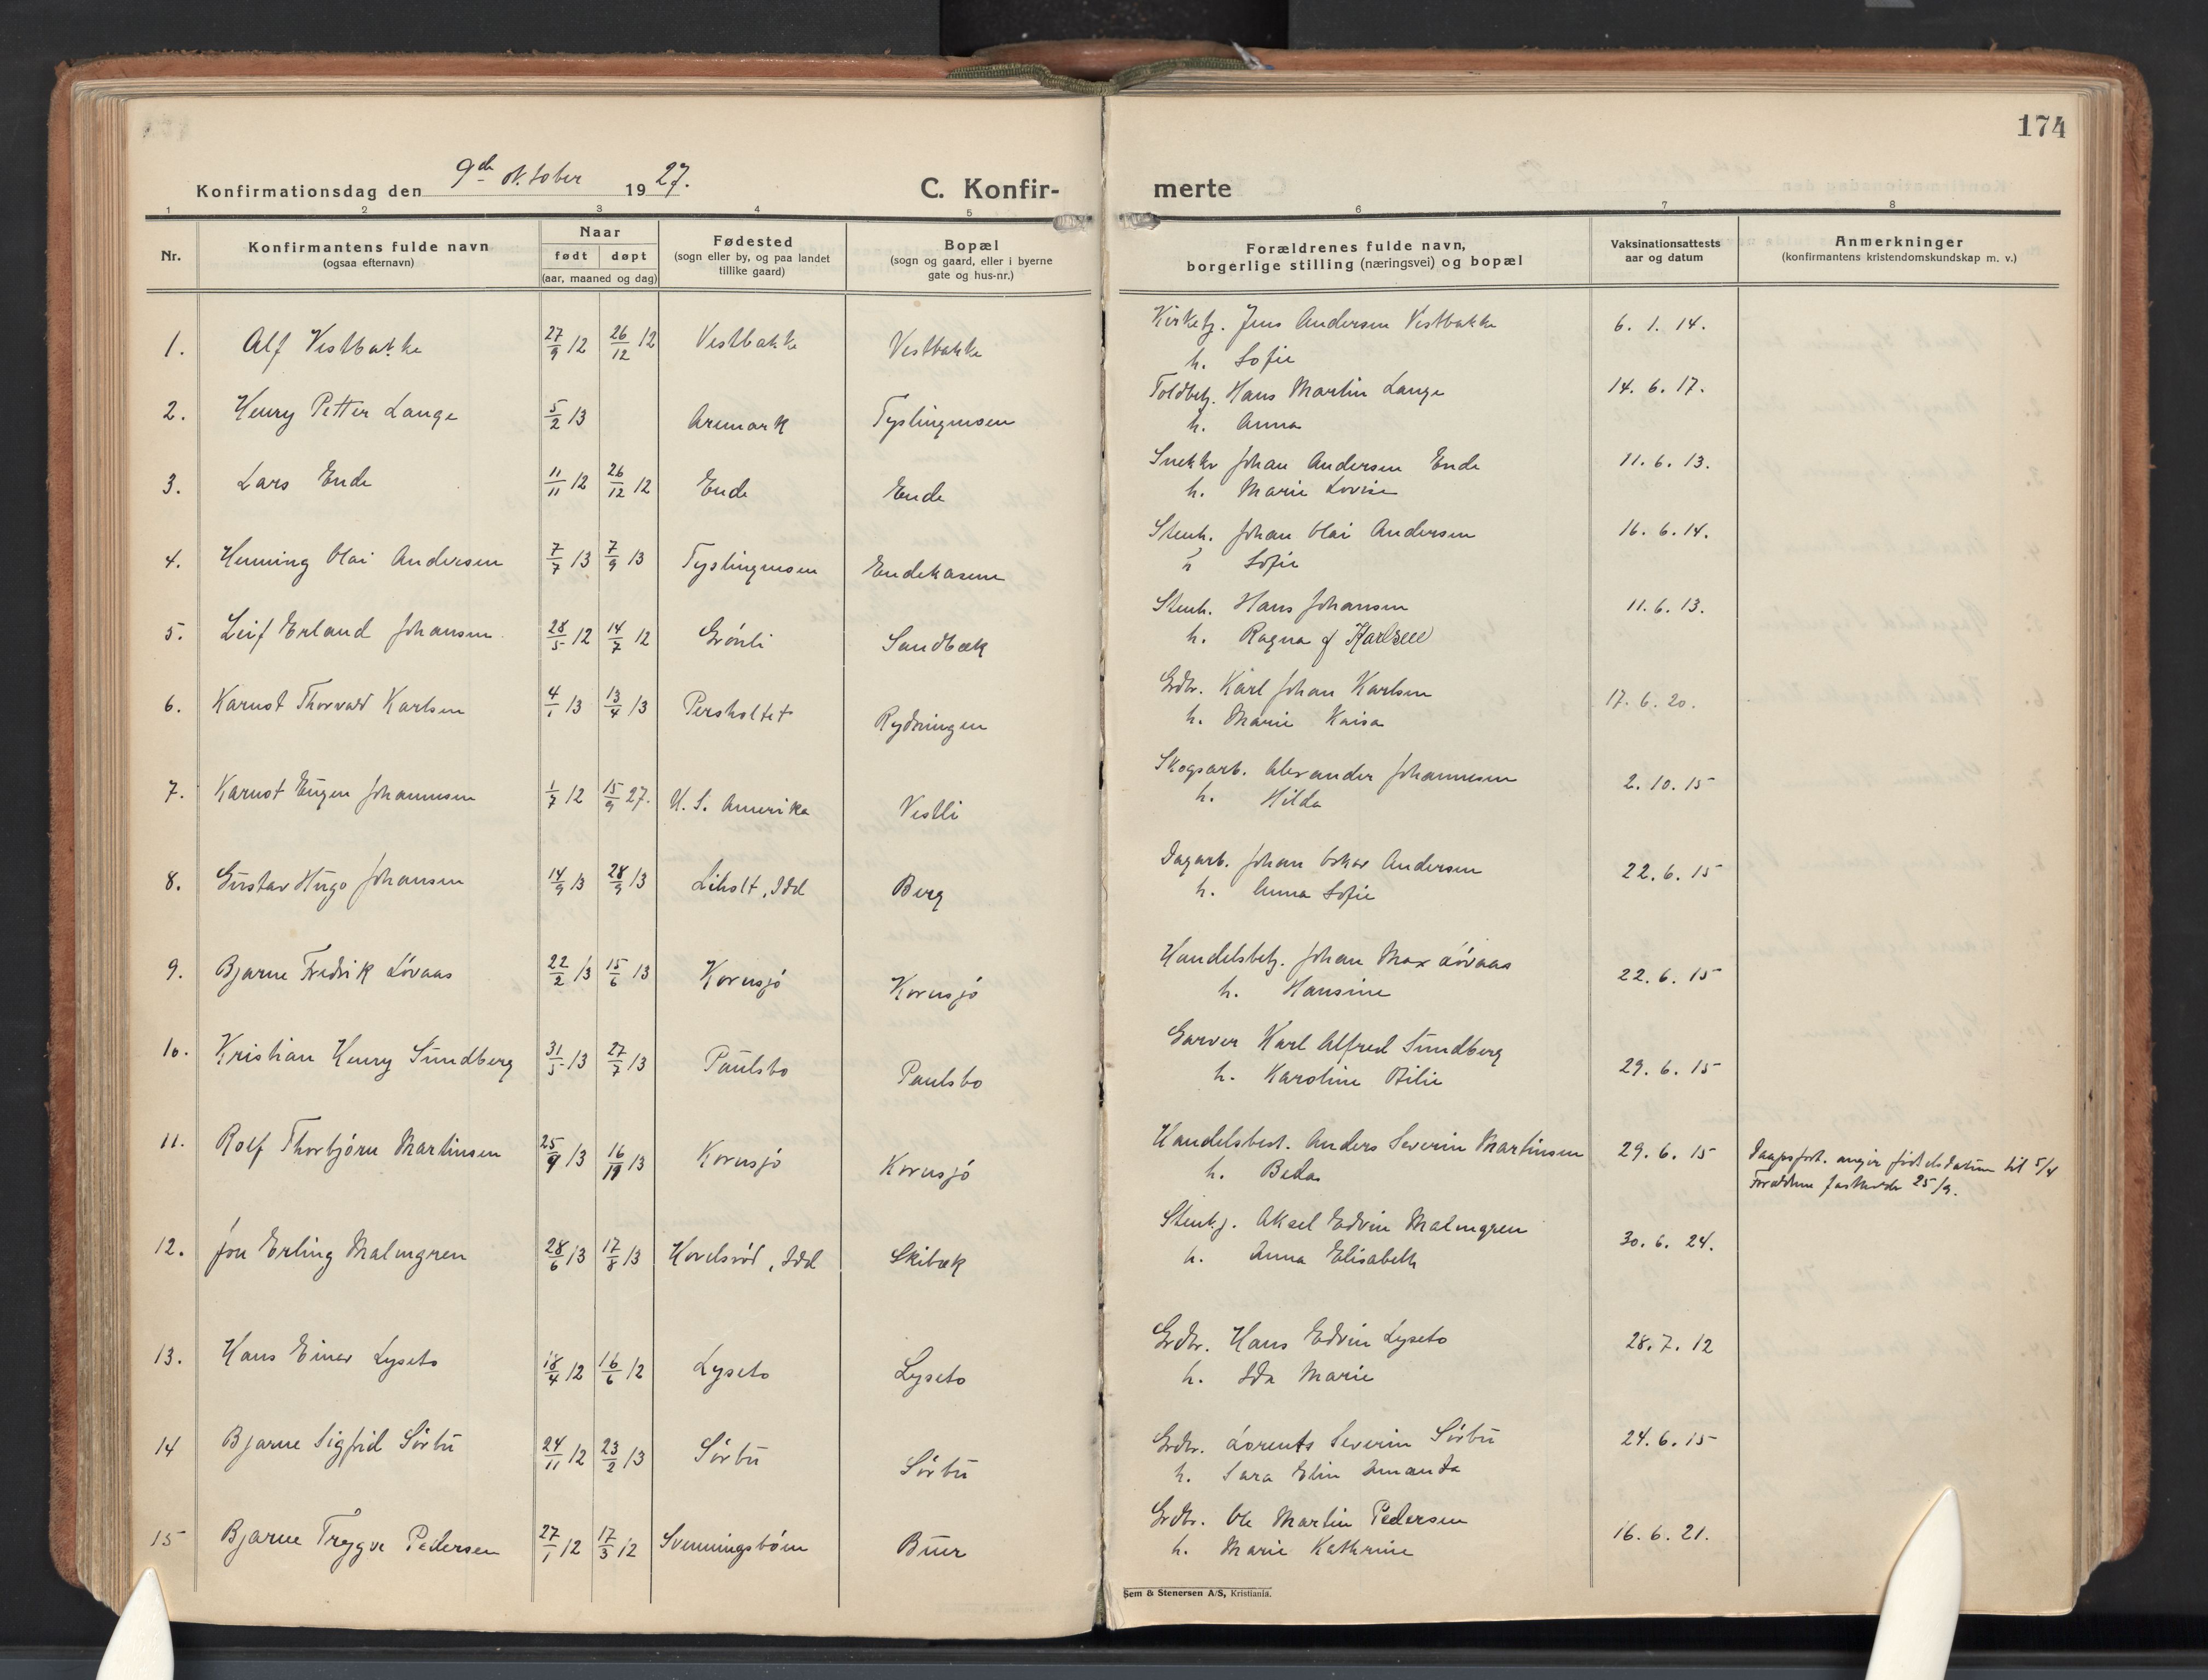 174
Konfirmationsdag den 9de oktober 1927.
C. Konfir-
merte
1 2 3 4 5 6 7 8
Nr.
Konfirmantens fulde navn
(ogsaa efternavn)
Naar
født døpt
(aar, maaned og dag)
Fødested
(sogn eller by, og paa landet
tillike gaard)
Bopæl
(sogn og gaard, eller i byerne
gate og hus-nr.)
Forældrenes fulde navn,
borgerlige stilling (næringsvei) og bopæl
Vaksinationsattests
aar og datum
Anmerkninger
(konfirmantens kristendomskundskap m. v.)
1. Alf Vestbakke 27/9 12 26/12 12 Vestbakke Vestbakke Kirketj. Jens Andersen Vestbakke 6. 1. 14.
h. Sofie
2. Henry Petter Lange 5/2 13 Aremark Tyslingmosen Toldbetj. Hans Martin Lange 14. 6. 17.
h. Anna
3. Lars Ende 11/11 12 26/12 12 Ende Ende Snekker Johan Andersen Ende 11. 6. 13.
h. Marie Lovise
4. Henning Olai Andersen 7/7 13 7/9 13 Tyslingmosen Endekasene Stenh. Johan Olai Andersen 16. 6. 14.
h Sofie
5. Leif Erland Johansen 28/5 12 14/7 12 Grønli Sandbæk Stenh. Hans Johansen 11. 6. 13.
h. Ragna f Karlsen
6. Karnot Thorvald Karlsen 4/1 13 13/4 13 Persholtet Rydningen Grdbr. Karl Johan Karlsen 17. 6. 20.
h. Marie Kaisa
7. Karnot Eugen Johannesen 1/7 12 15/9 27. U. S. Amerika Vestli Skogsarb. Alexander Johannesen 2. 10. 15
h. Hilda
8. Gustav Hugo Johansen 14/9 13 28/9 13 Liholt, Idd Berg Dagarb. Johan Oskar Andersen 22. 6. 15
h. Anna Sofie
9. Bjarne Fredrik Løvaas 22/2 13 15/6 13 Kornsjø Kornsjø Handelsbetj. Johan Max Løvaas 22. 6. 15
h. Hansine
10. Kristian Henry Sundberg 31/5 13 27/7 13 Paulsbo Paulsbo Garver Karl Alfred Sundberg 29. 6. 15
h. Karoline Otilie
11. Rolf Thorbjørn Martinsen 25/9 13 16/11 13 Kornsjø Kornsjø Handelsbest. Anders Severin Martinsen 29. 6. 15 Daapsprt. angir fødselsdatum til 5/4
h. Beda Forældrene fastholder 25/9.
12. Jon Erling Malmgren 28/6 13 17/8 13 Kovelsrød, Idd Skibæk Stenhj. Aksel Edvin Malmgren 30. 6. 24.
h. Anna Elisabeth
13. Hans Einar Lyseto 18/4 12 16/6 12 Lyseto Lyseto Grdbr. Hans Edvin Lyseto 28. 7. 12
h. Ida Marie
14 Bjarne Sigfrid Sørbu 24/11 12 23/2 13 Sørbu Sørbu Grdbr. Lorents Severin Sørbu 24. 6. 15
h. Sara Elin Amanda
15 Bjarne Trygve Pedersen 27/1 12 17/3 12 Svenningsbøen Buer Grdbr. Ole Martin Pedersen 16. 6. 21.
h. Marie Kathrine
Sem & Stenersen A/S, Kristiania.